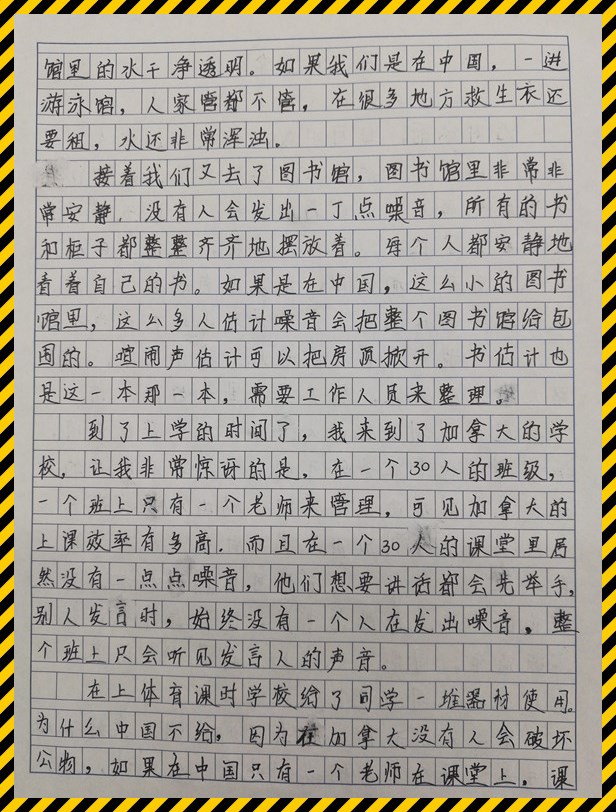 馆里的水干净透明。如果我们是在中国，一进
游泳馆，人家管都不管，在很多地方救生衣还
要租，水还非常浑浊。
接着我们又去了图书馆，图书馆里非常非
常安静，没有人会发出一丁点噪音，所有的书
和柜子都整整齐齐地摆放着。每个人都安静地
看着自己的书。如果是在中国，这么小的图书
馆里，这么多人估计噪音会把整个图书馆给包
围的。喧闹声估计可以把房顶掀开。书估计也
是这一本那一本，需要工作人员来整理。
到了上学的时间了，我来到了加拿大的学
校，让我非常惊讶的是，在一个30人的班级，
一个班上只有一个老师来管理，可见加拿大的
上课效率有多高。而且在一个30人的课堂里居
然没有一点点噪音，他们想要讲话都会先举手，
别人发言时，始终没有一个人在发出噪音。整
个班上只会听见发言人的声音。
在上体育课时学校给了同学一堆器材使用。
为什么中国不给，因为在加拿大没有人会破坏
公物，如果在中国只有一个老师在课堂上，课